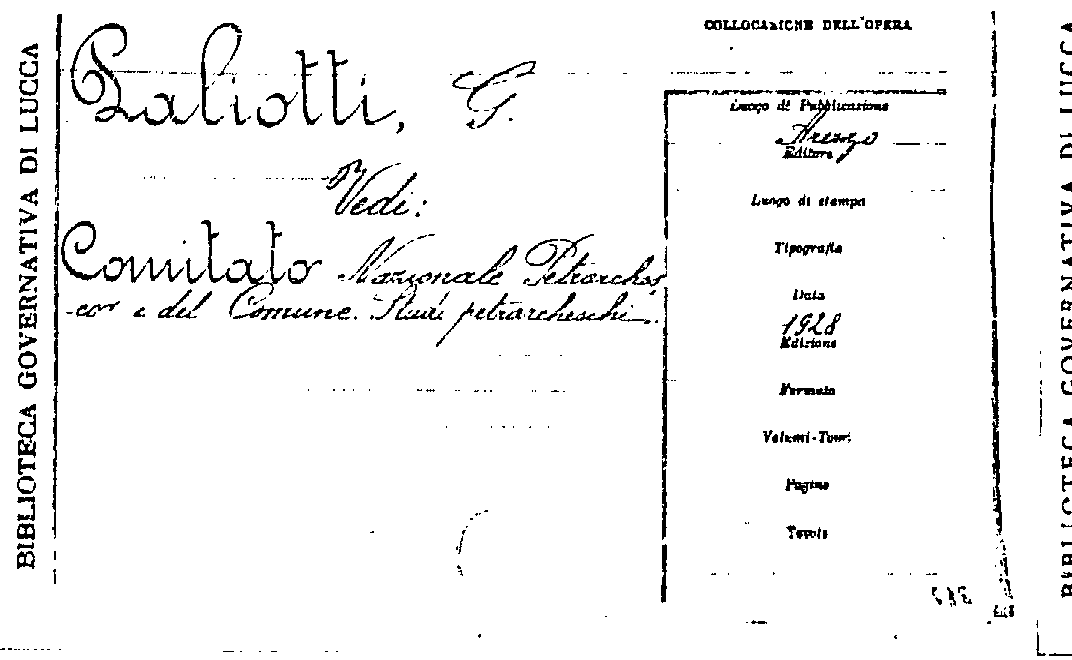 BIBLIOTECA GOVERNATIVA DI LUCCA
Paliotti, G.
Vedi:
Comitato Nazionale Petrarches
co e del Comune. Studi petrarcheschi.
COLLOCAZIONE DELL'OPERA
Luogo di Pubblicazione
Arezzo
Editore
Luogo di stampa
Tipografia
Data
1928
Edizione
Formato
Volumi-Tomi
Pagine
Tavole
BIBLIOTECA GOVERNATIVA DI LUCCA